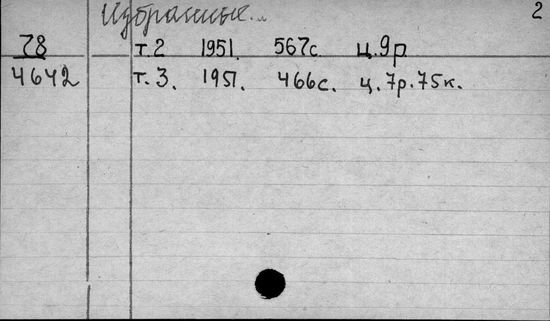 Избранные... 2
78 т.2 1951. 567с. ц.9р
4642 т.3. 1951. 466с. ц.7р.75к.